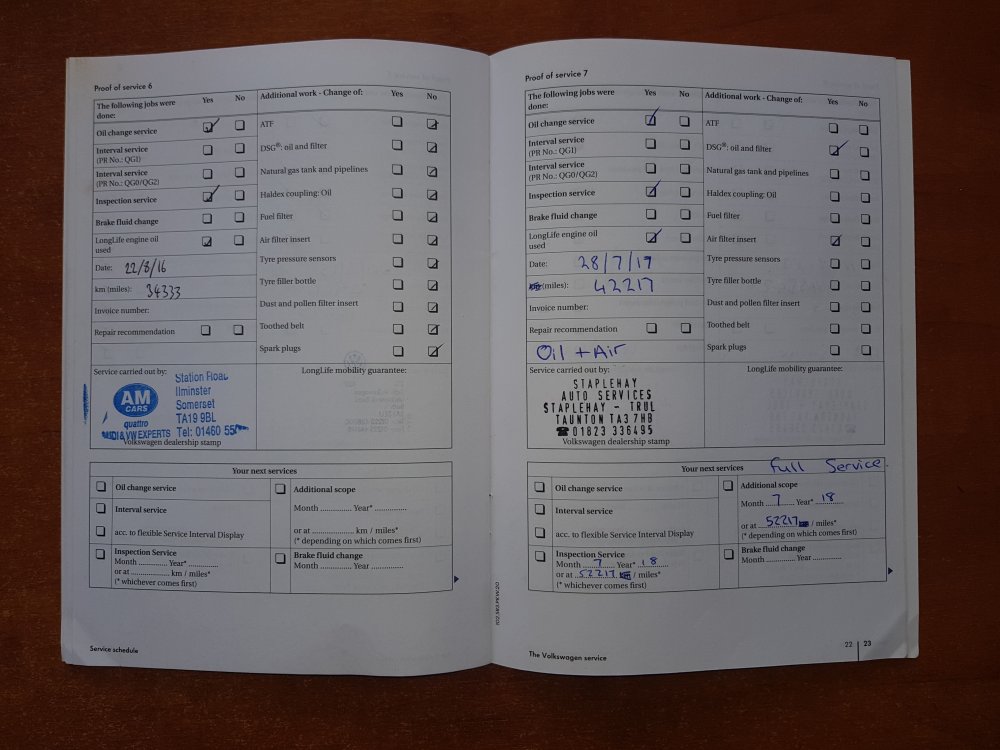 Proof of service 6
The following jobs were done:
Yes
No
Additional work - Change of:
Yes
No
Oil change service
Interval service
(PR No.: QG1)
Interval service
(PR No.: QG0/QG2)
Inspection service
Brake fluid change
LongLife engine oil
used
Date: 22/8/16
km (miles): 34333
Invoice number:
Repair recommendation
ATF
DSG®: oil and filter
Natural gas tank and pipelines
Haldex coupling: Oil
Fuel filter
Air filter insert
Tyre pressure sensors
Tyre filler bottle
Dust and pollen filter insert
Toothed belt
Spark plugs
Service carried out by:
LongLife mobility guarantee:
AM
CARS
quattro
& VW EXPERTS
Station Road
Ilminster
Somerset
TA19 9BL
Tel: 01460 55
Volkswagen dealership stamp
Your next services
Oil change service
Interval service
acc. to flexible Service Interval Display
Inspection Service
Month ............ Year* .........
or at ................ km / miles*
(* whichever comes first)
Additional scope
Month ............ Year* ............
or at ................ km / miles*
(* depending on which comes first)
Brake fluid change
Month ............ Year ............
Service schedule
Proof of service 7
The following jobs were
done:
Yes
No
Additional work - Change of:
Yes
No
Oil change service
Interval service
(PR No.: QG1)
Interval service
(PR No.: QG0/QG2)
Inspection service
Brake fluid change
LongLife engine oil
used
Date: 28/7/17
(miles): 42217
Invoice number:
Repair recommendation
Oil + Air
ATF
DSG®: oil and filter
Natural gas tank and pipelines
Haldex coupling: Oil
Fuel filter
Air filter insert
Tyre pressure sensors
Tyre filler bottle
Dust and pollen filter insert
Toothed belt
Spark plugs
Service carried out by:
LongLife mobility guarantee:
STAPLEHAY
AUTO SERVICES
STAPLEHAY - TRUL
TAUNTON TA3 7HB
☎ 01823 336495
Volkswagen dealership stamp
Your next services Full Service
Oil change service
Interval service
acc. to flexible Service Interval Display
Inspection Service
Month 7 Year* 18
or at 52217 / miles*
(* whichever comes first)
Additional scope
Month 7 Year* 18
or at 52217 / miles*
(* depending on which comes first)
Brake fluid change
Month ............ Year ............
The Volkswagen service
22 | 23